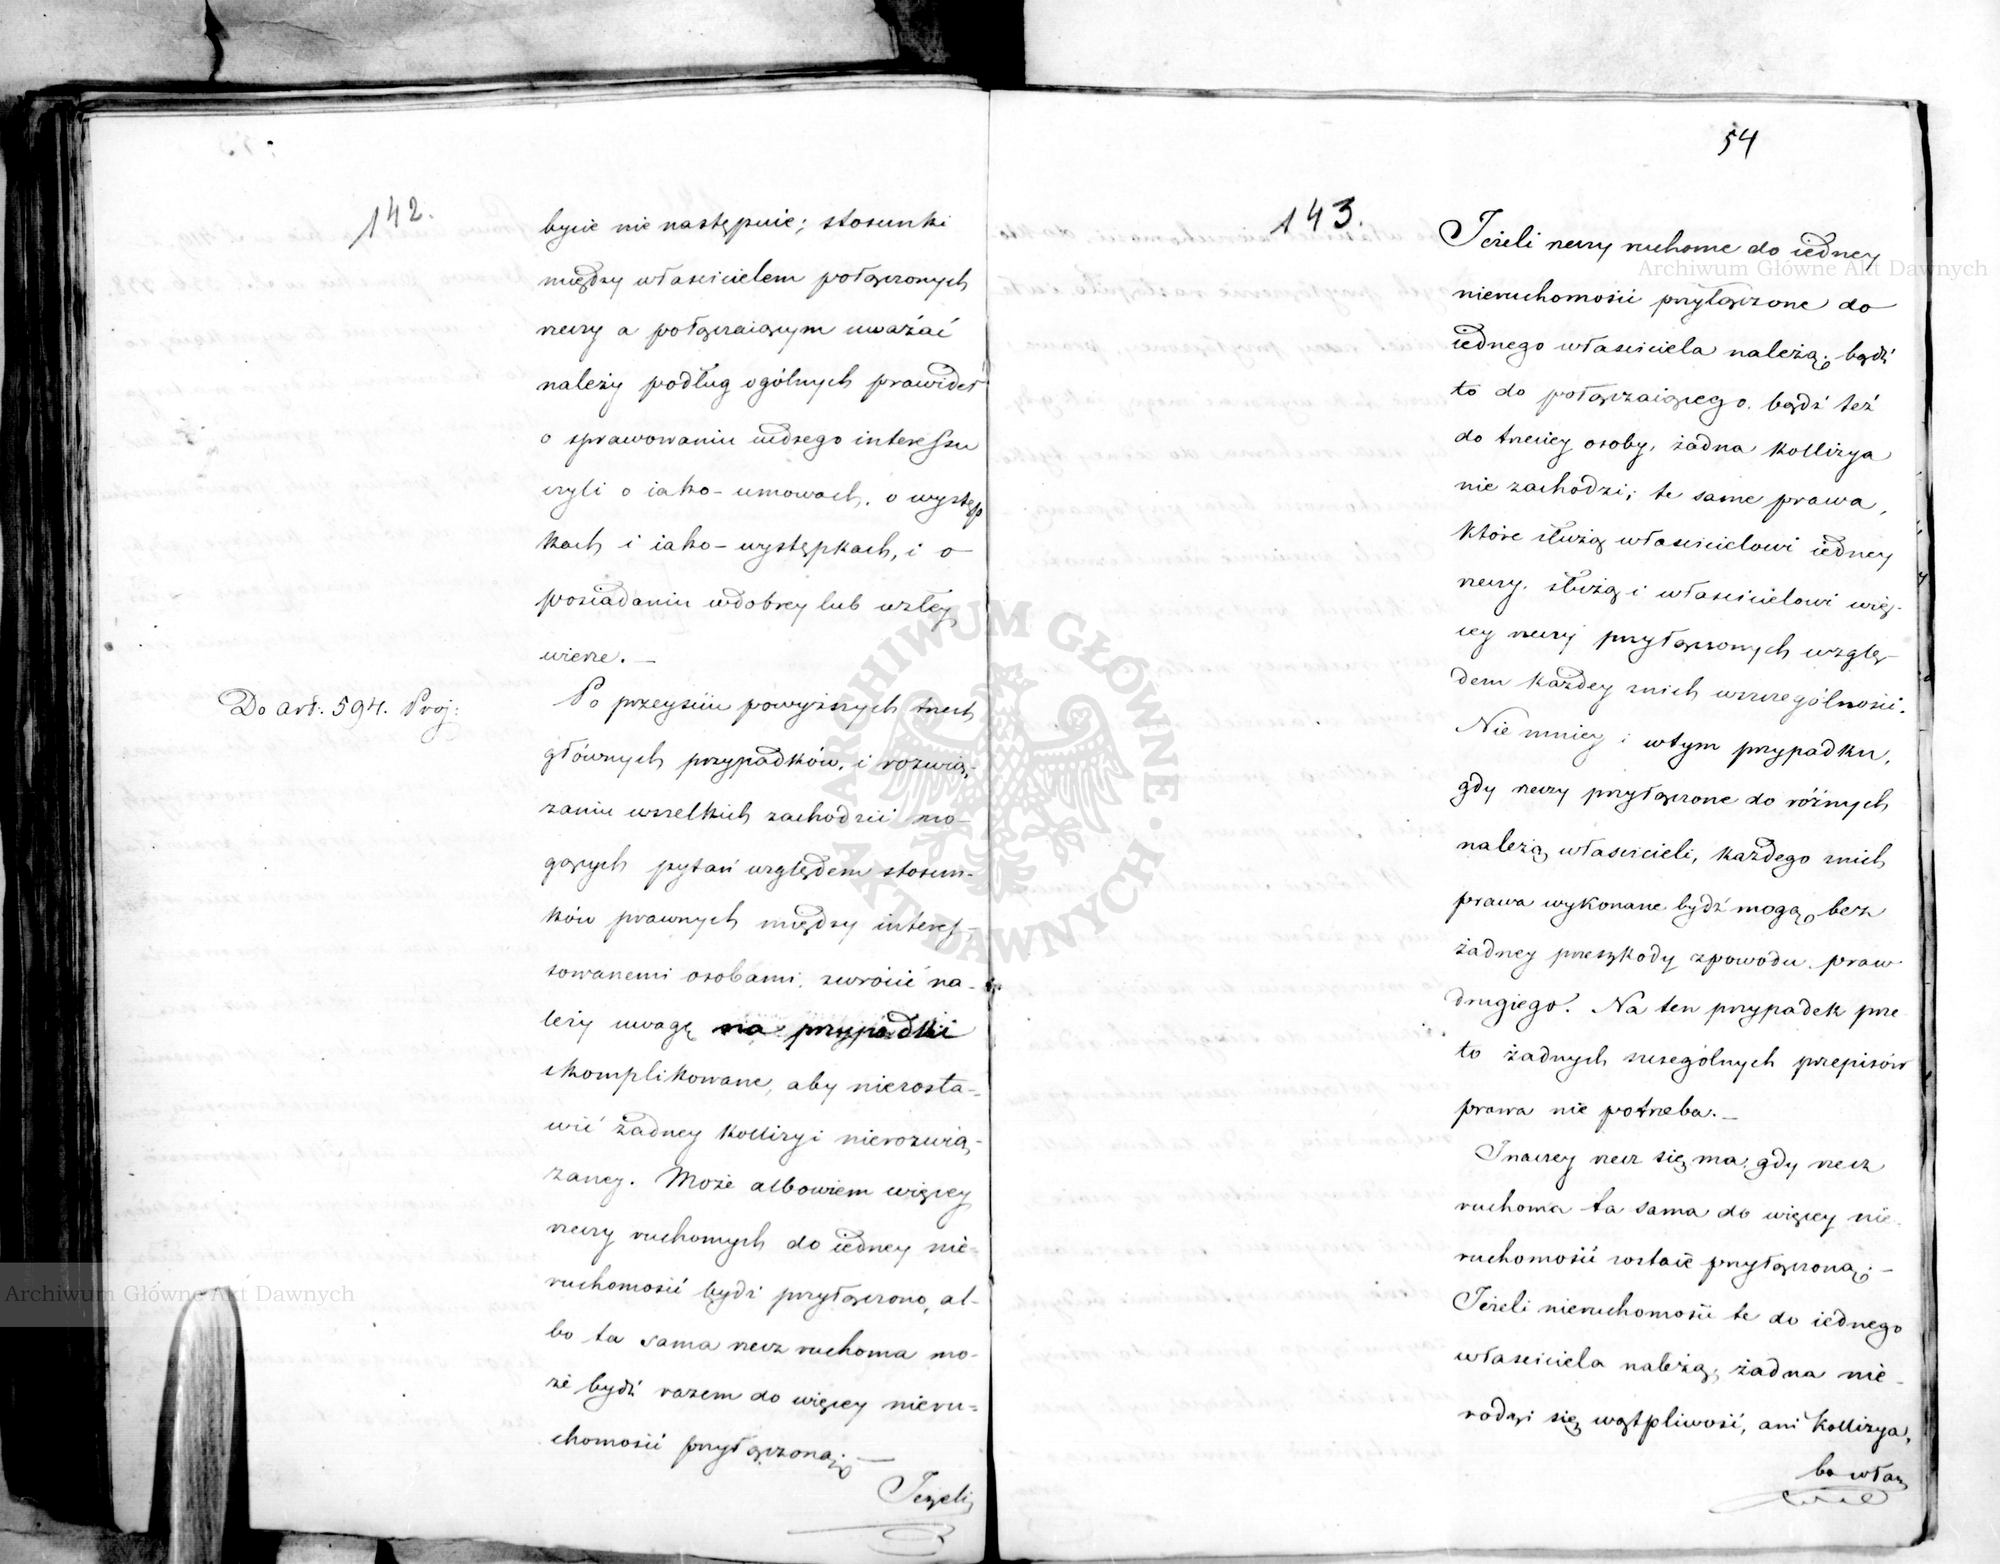 142.
bycie nie następuie; stosunki
między właścicielem połączonych
rzeczy a połączaiącym uważać
należy podług ogólnych prawideł
o sprawowaniu cudzego interessu
czyli o iako-umowach, o występ
kach i iako-występkach, i o
posiadaniu w dobrey lub w złey
wierze. —
Do art: 594. Proj:
Po przeyściu powyższych trzech
głównych przypadków, i rozwią-
zaniu wszelkich zachodzić mo-
gących pytań względem stosun-
ków prawnych między interes-
sowanemi osobami, zwrócić na-
leży uwagę na przypadki
skomplikowane, aby niezosta-
wić żadney kollizyi nierozwią-
zaney. Może albowiem więcey
rzeczy ruchomych do iedney nie-
ruchomości bydź przyłączono, al-
bo ta sama rzecz ruchoma mo-
że bydź razem do więcey nieru-
chomości przyłączoną. —
Jeżeli
54
143.
Jeżeli rzeczy ruchome do iedney
nieruchomości przyłączone do
iednego właściciela należą, bądź
to do połączaiącego, bądź też
do trzeciey osoby, żadna kollizya
nie zachodzi; te same prawa,
które służą właścicielowi iedney
rzeczy, służą i właścicielowi wię-
cey rzeczy przyłączonych wzglę-
dem każdey z nich w szczególności.
Nie mniey i w tym przypadku,
gdy rzeczy przyłączone do różnych
należą właścicieli, każdego z nich
prawa wykonane bydź mogą, bez
żadney przeszkody z powodu praw
drugiego. Na ten przypadek prze
to żadnych szczególnych przepisów
prawa nie potrzeba. —
Inaczey rzecz się ma, gdy rzecz
ruchoma ta sama do więcey nie-
ruchomości zostaie przyłączoną. —
Jeżeli nieruchomości te do iednego
właściciela należą, żadna nie
rodzi się wątpliwość, ani kollizya,
bo właś
Archiwum Główne Akt Dawnych
Archiwum Główne Akt Dawnych
ARCHIWUM GŁÓWNE · AKT DAWNYCH ·